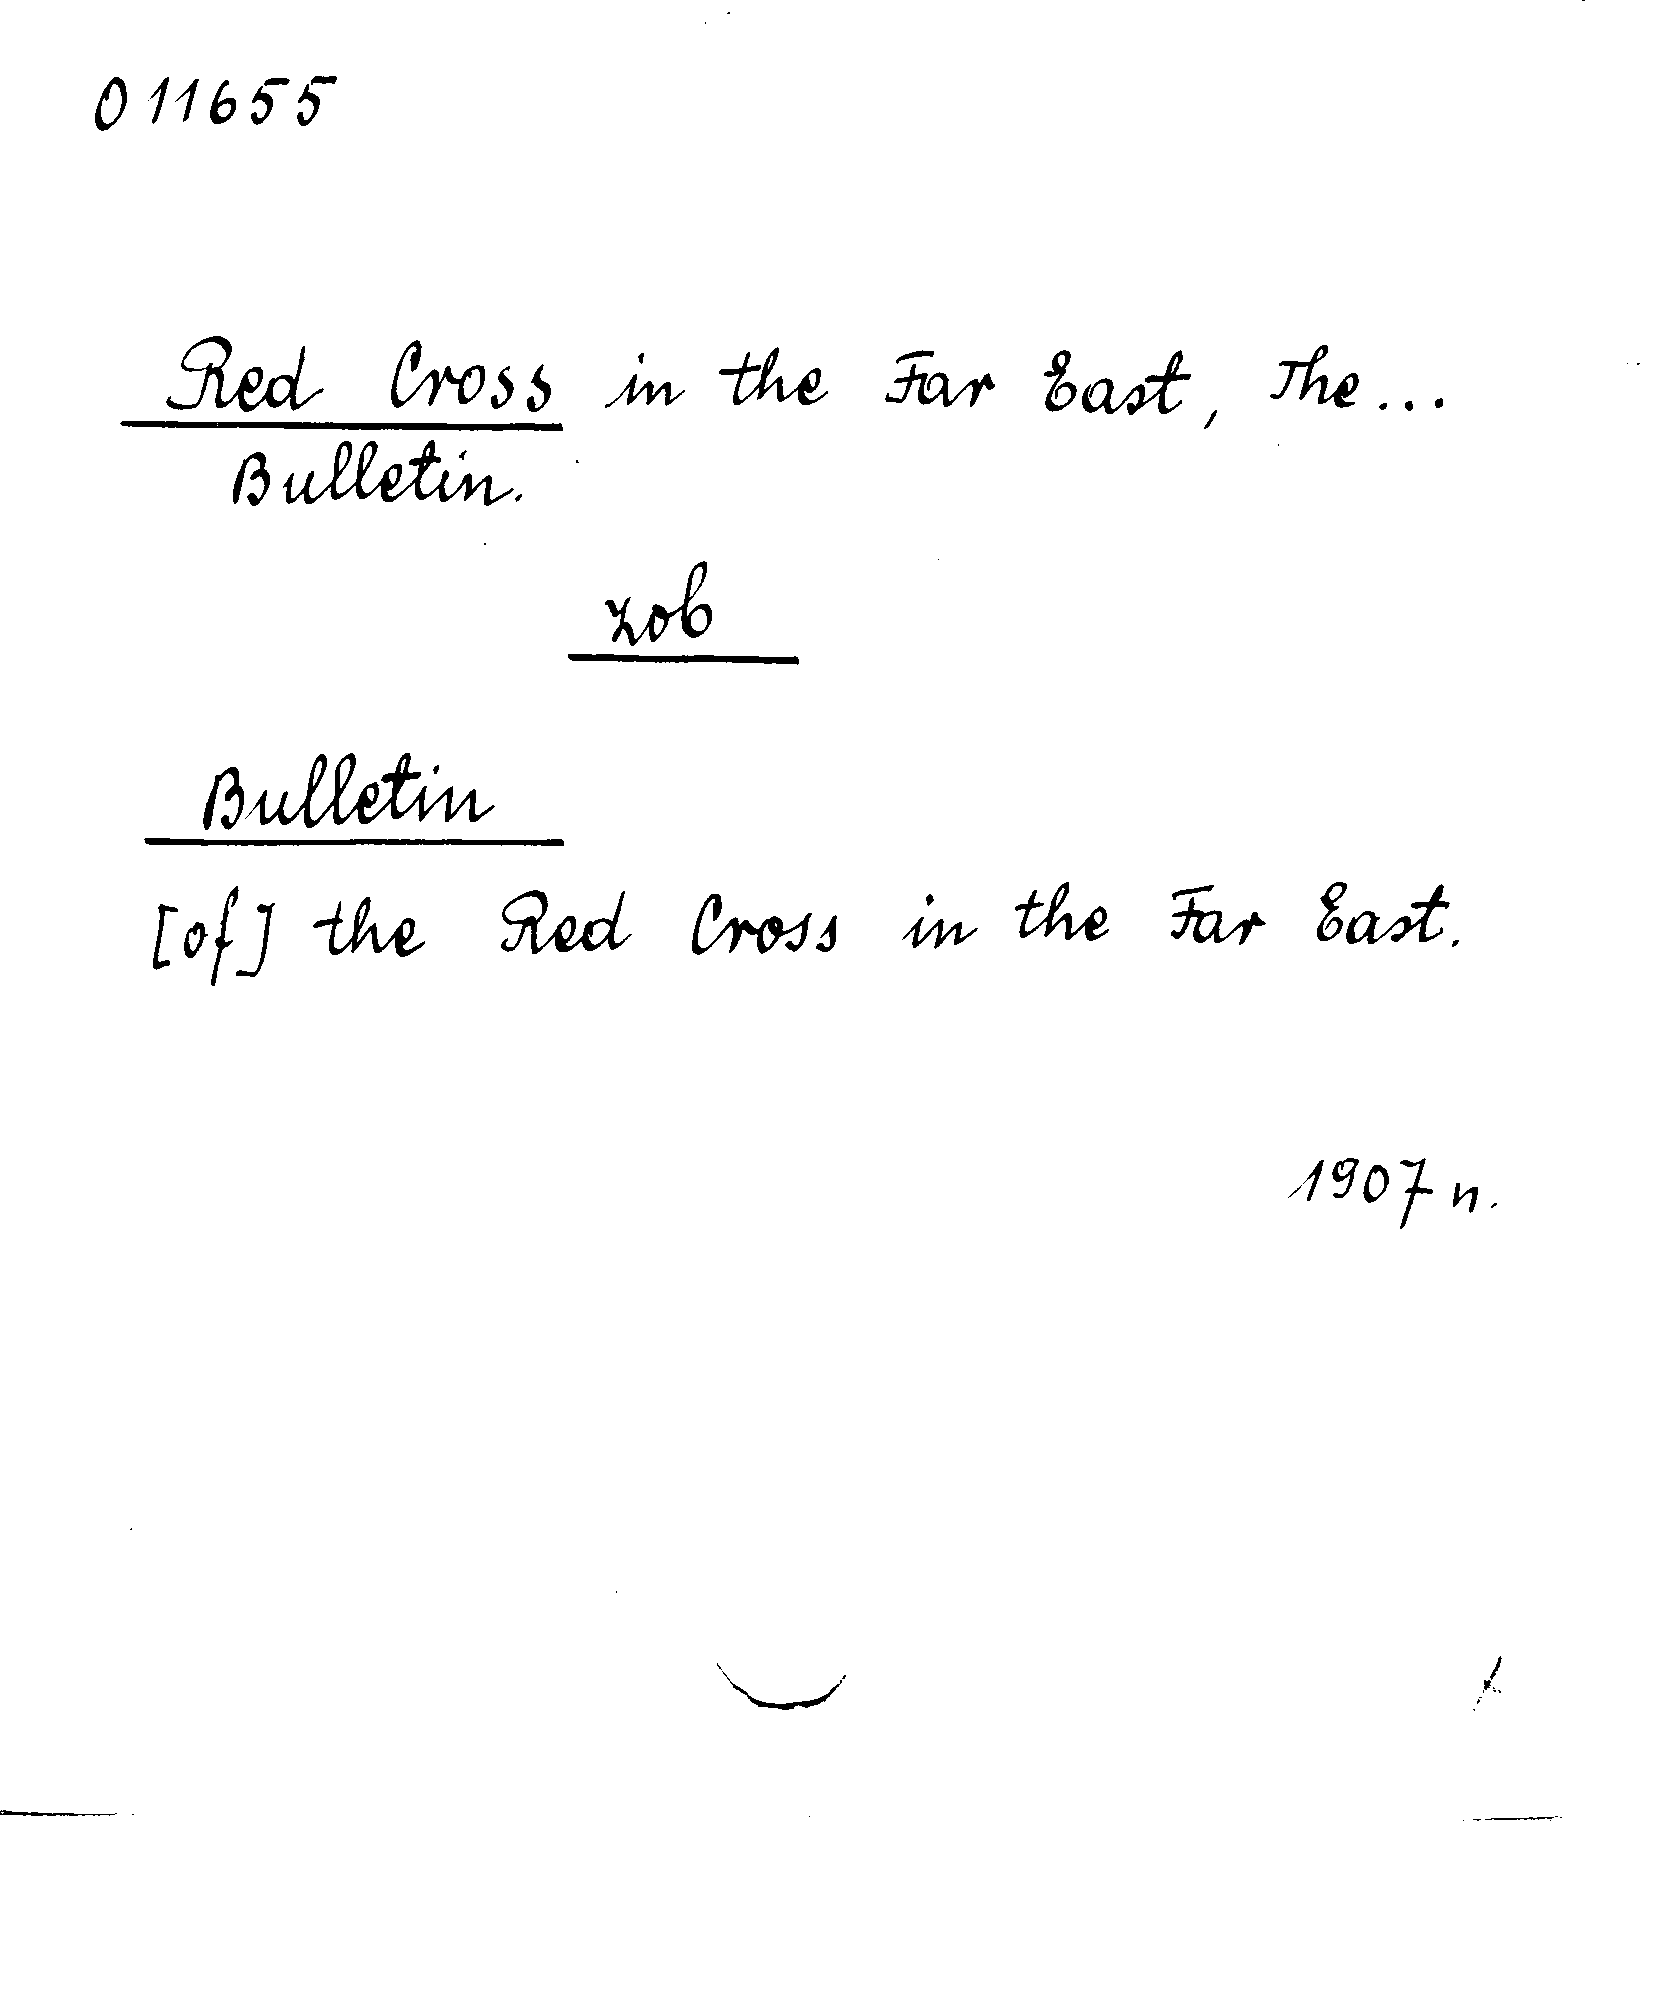 011655
Red Cross in the Far East, The...
Bulletin.
zob
Bulletin
[of] the Red Cross in the Far East.
1907 n.